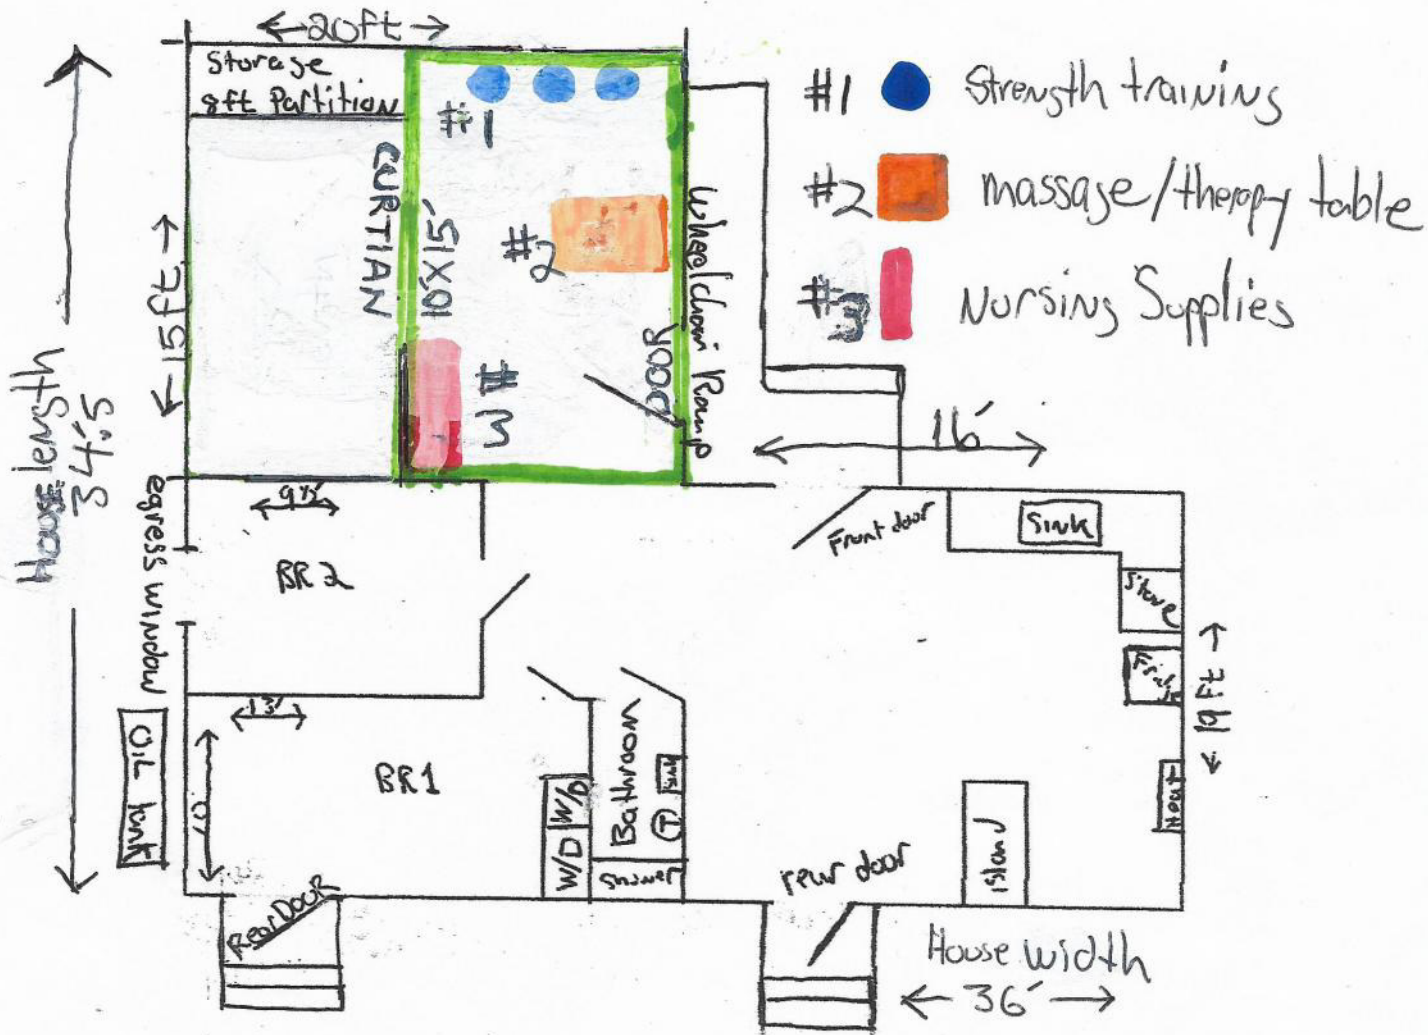 20ft
Storage
8ft Partition
#1
CURTIAN
10'X15'
#2
#3
DOOR
Wheelchair Ramp
#1 Strength training
#2 massage/therapy table
#3 Nursing Supplies
15ft.
House length
34'.5
16'
egress window
9½'
BR2
Front door
Sink
Stove
Fridge
19ft
13'
10'
OIL tank
BR1
W/D
W/D
Bathroom
Sink
T
shower
Heat
Island
rear door
Rear DOOR
House width
36'